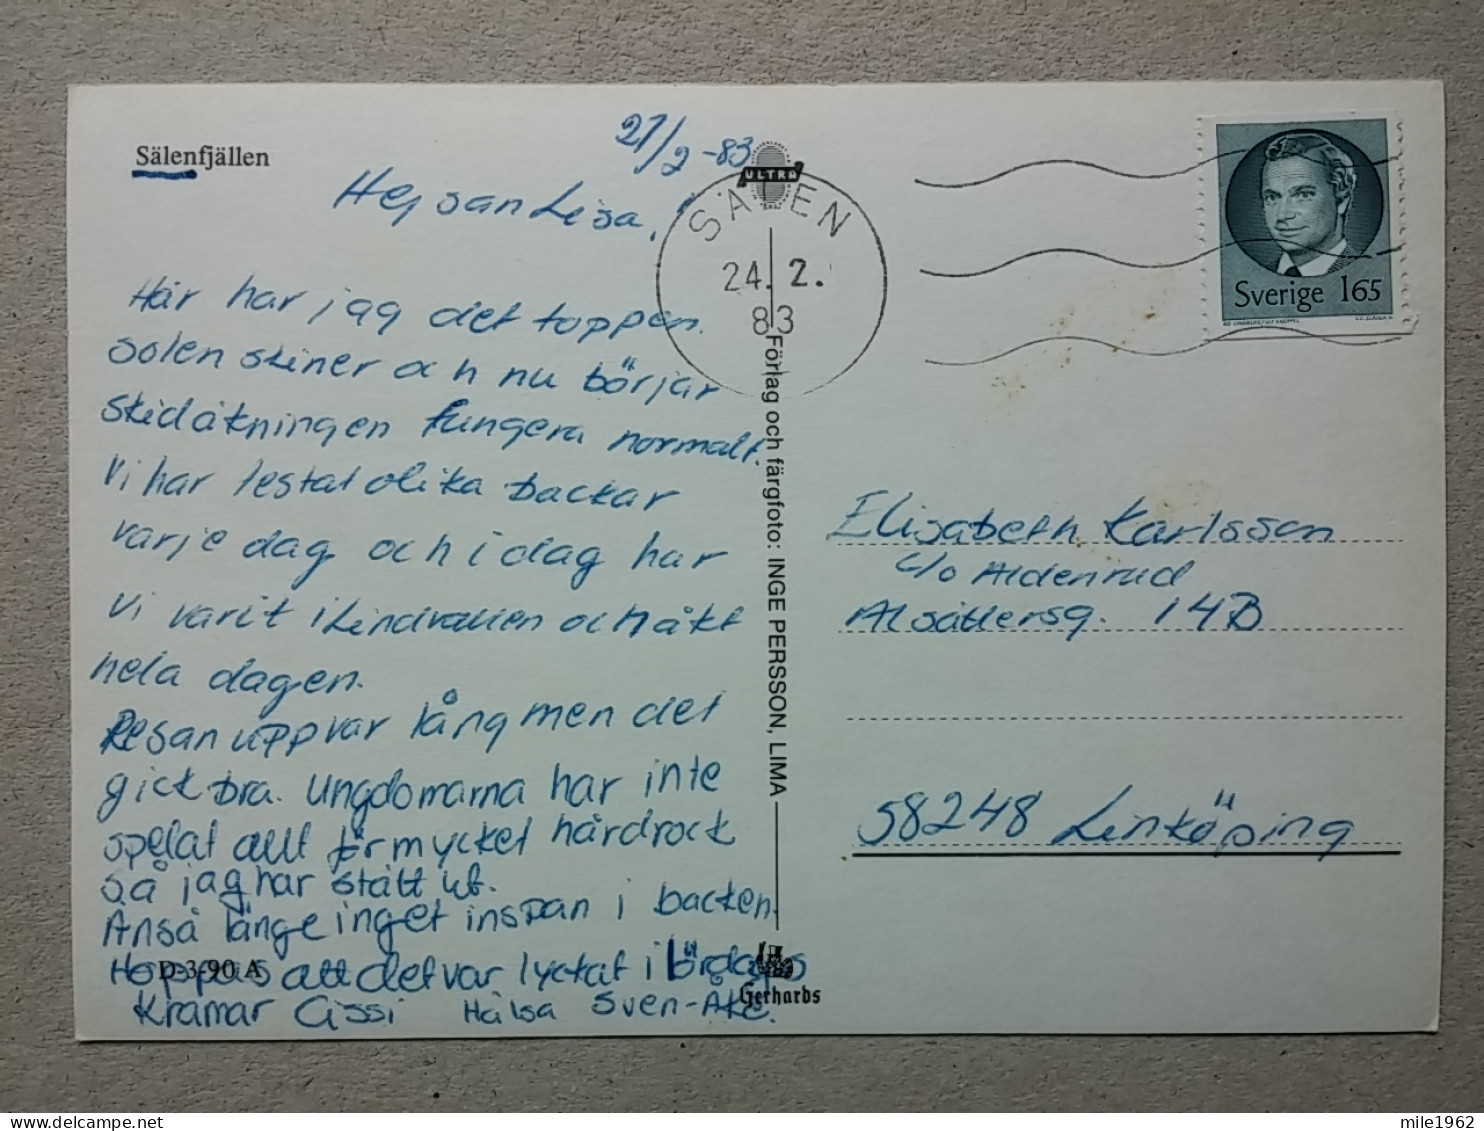 Sälenfjällen
21/2-83
Hejsan Lisa,
Här har jag det toppen.
Solen skiner och nu börjar
skidåkningen fungera normalt.
Vi har testat olika backar
varje dag och idag har
vi varit i Lindvallen och åkt
hela dagen.
Resan upp var lång men det
gick bra. Ungdomarna har inte
spelat allt för mycket hårdrock
så jag har stått ut.
Änså länge inget inspan i backen.
Hoppas att det var lyckat i lördags
Kramar Cissi Hälsa Sven-Åke.
D-3-90 A
ULTRA
SÄLEN
24. 2.
83
Förlag och färgfoto: INGE PERSSON, LIMA
Gerhards
Sverige 165
Elisabeth Karlsson
c/o Aldenrud
Alsättersg. 14B
58248 Linköping
mile1962